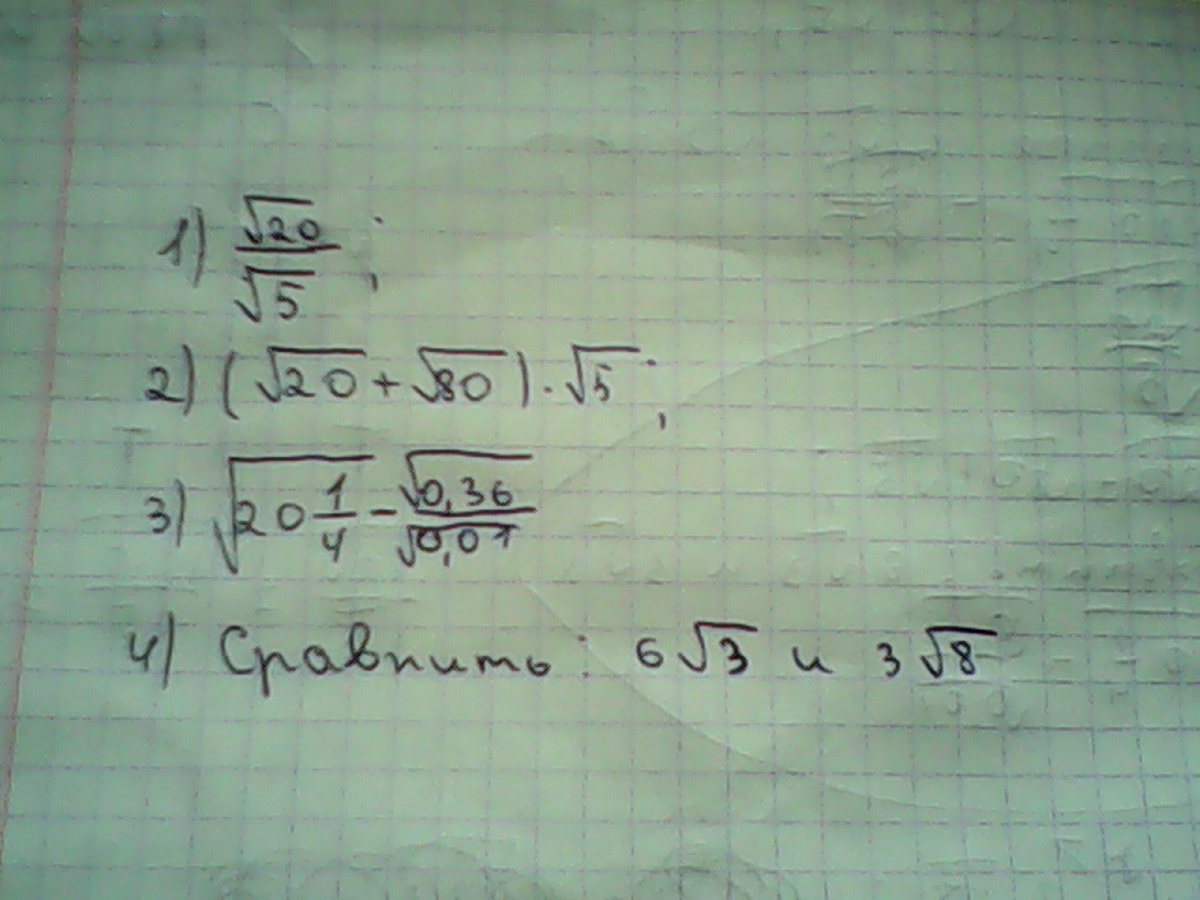 1) √20/√5 ;
2) (√20 + √80) · √5 ;
3) √(20 1/4) − √0,36/√0,01
4) Сравнить : 6√3 и 3√8